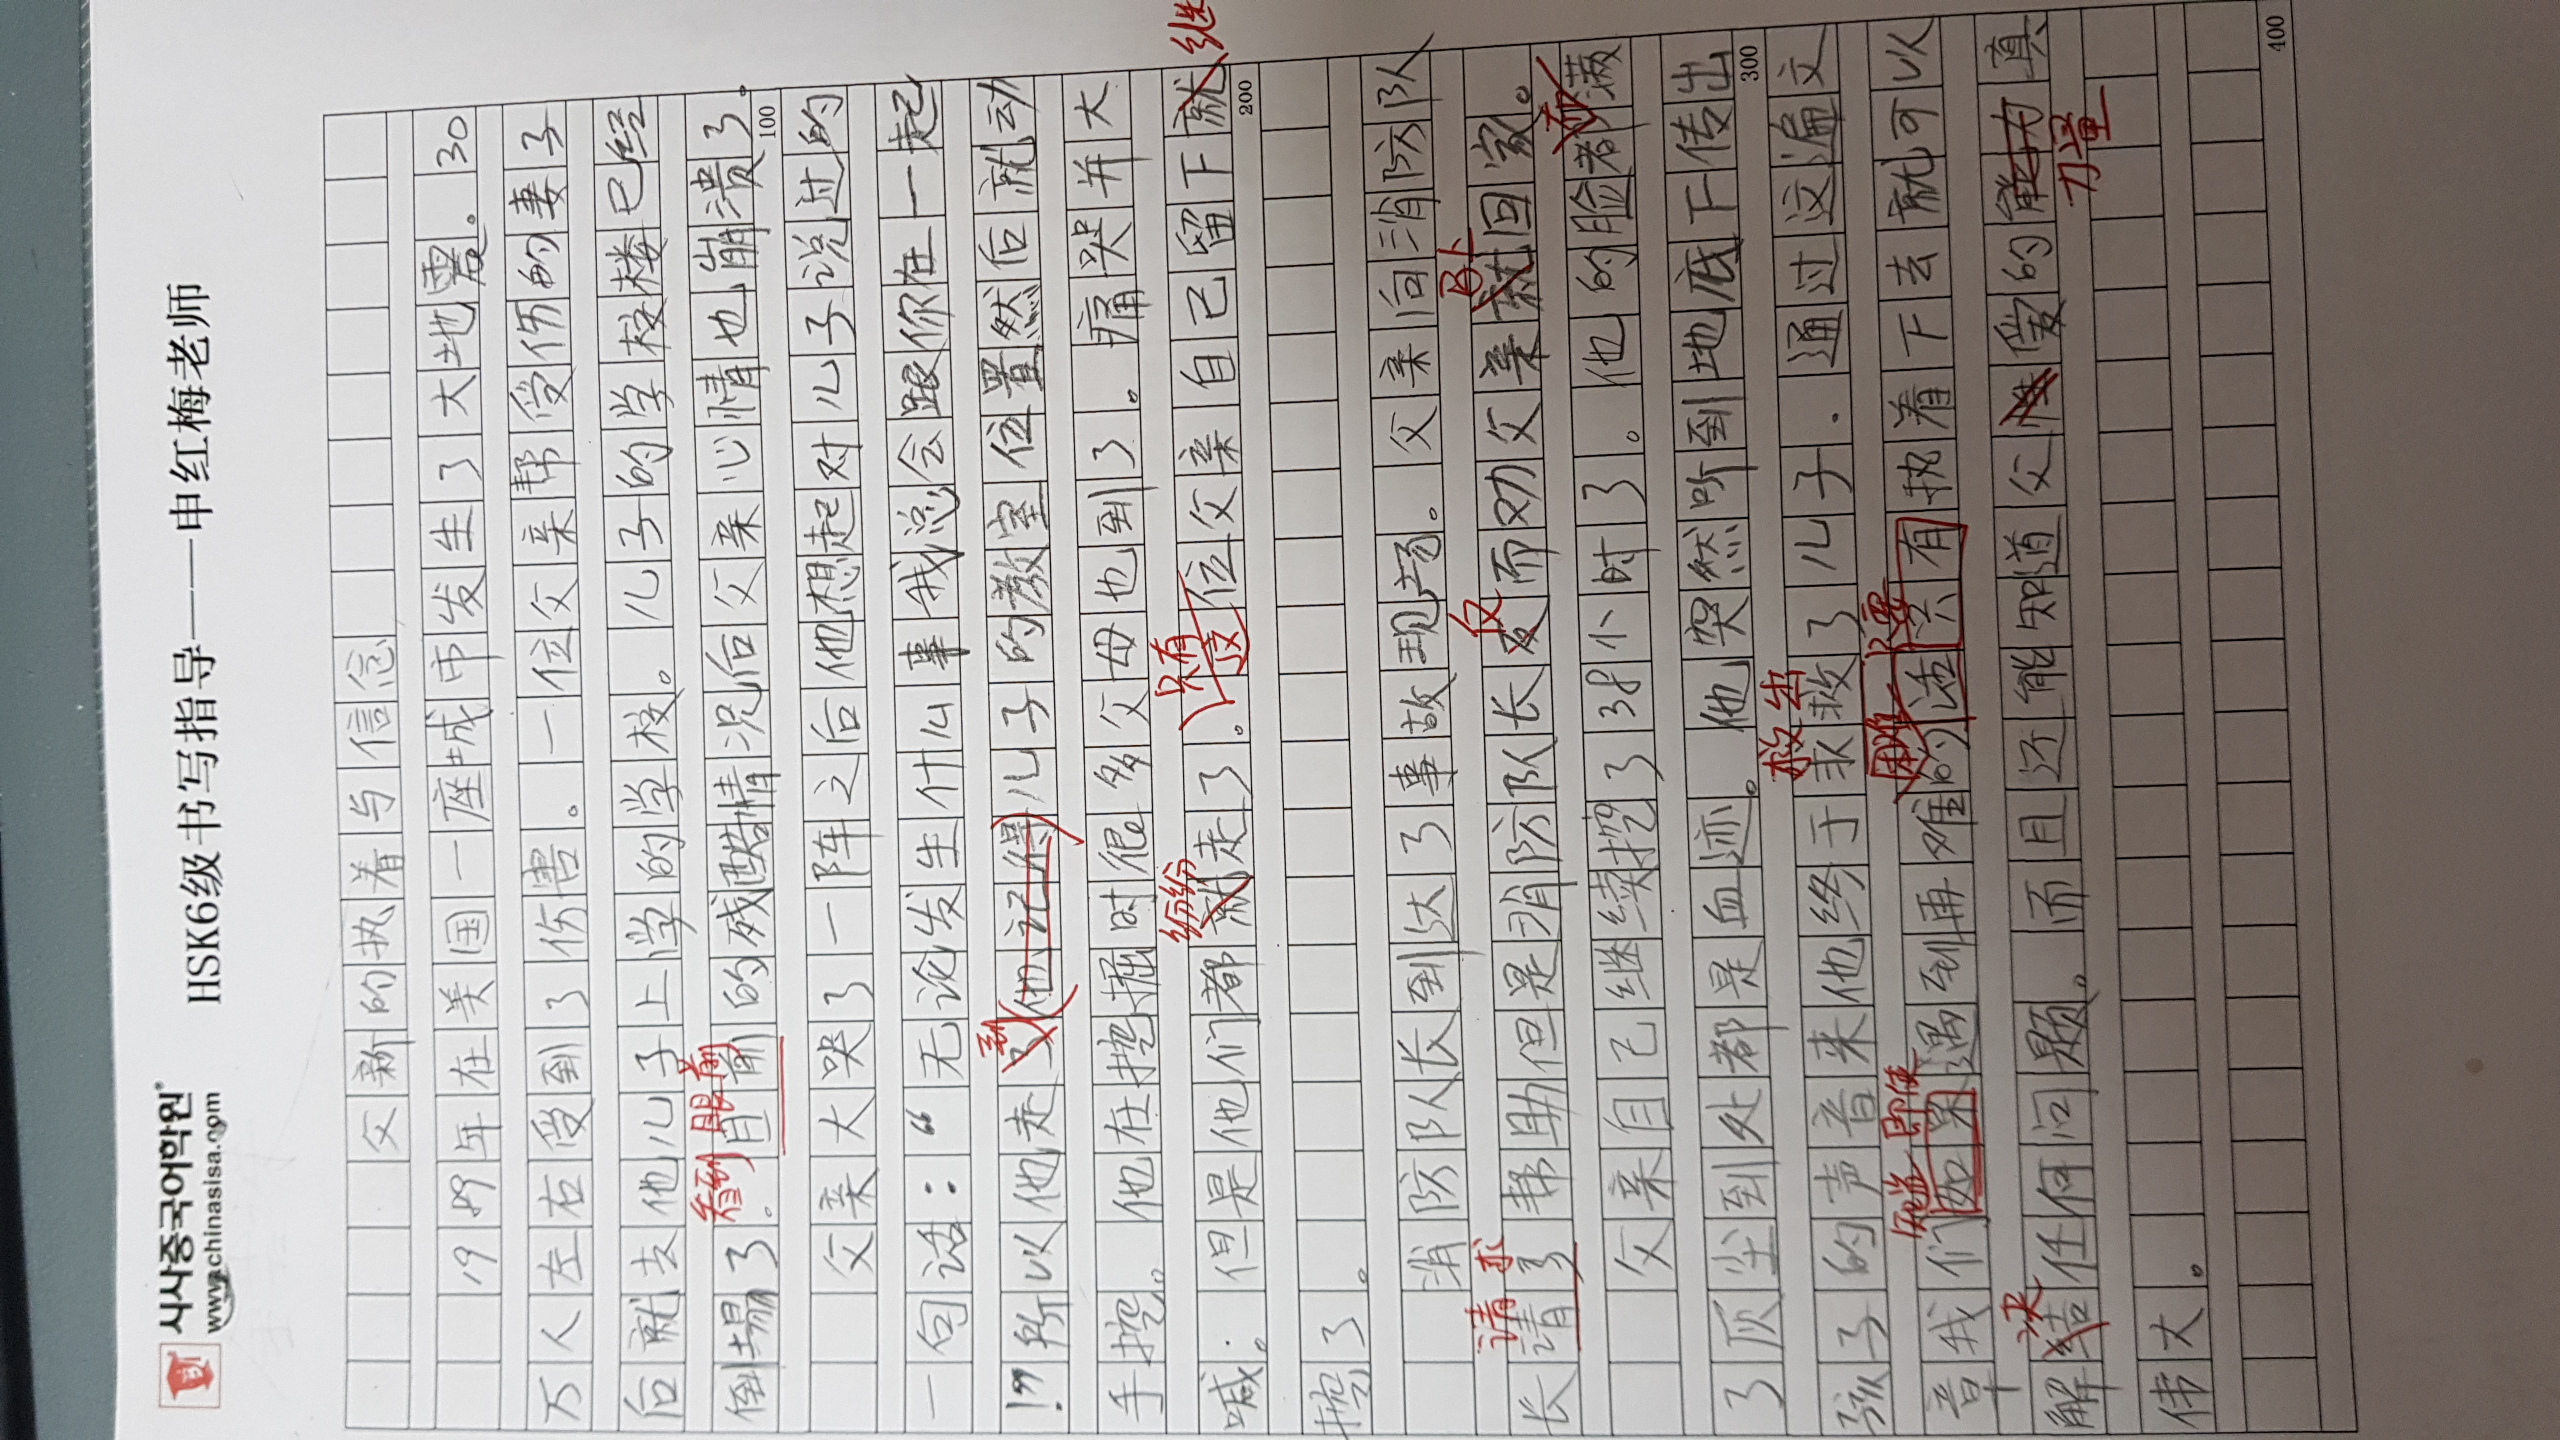 시사중국어학원
www.chinasisa.com
HSK6级书写指导——申红梅老师
父新的执着与信念
1989年在美国一座城市发生了大地震。30
万人左右受到了伤害。一位父亲帮受伤的妻子
后就去他儿子上学的学校。儿子的学校楼已经
看到 眼前
倒塌了。目前的残酷情况后父亲心情也崩溃了。
100
父亲大哭了一阵之后他想起对儿子说过的
一句话:“无论发生什么事我总会跟你在一起
到
!”所以他走又(他记得)儿子的教室位置然后就动
手挖。他在挖掘时很多父母也到了。痛哭并大
纷纷 只有 继
喊。但是他们都就走了。这位父亲自己留下就
200
挖了。
消防队长到达了事故现场。父亲向消防队
请求 反 马上
长请了帮助但是消防队长反而劝父亲就回家。
布
父亲自己继续挖了38小时了。他的脸都满
了灰尘到处都是血迹。他突然听到地底下传出
300
救出
孩子的声音来他终于求救了儿子。通过这遍文
碰 即使 只要
章我们如果遇到再难的话只有执着下去就可以
决
解结任何问题。而且还能知道父爱的能力真
力量
伟大。
400